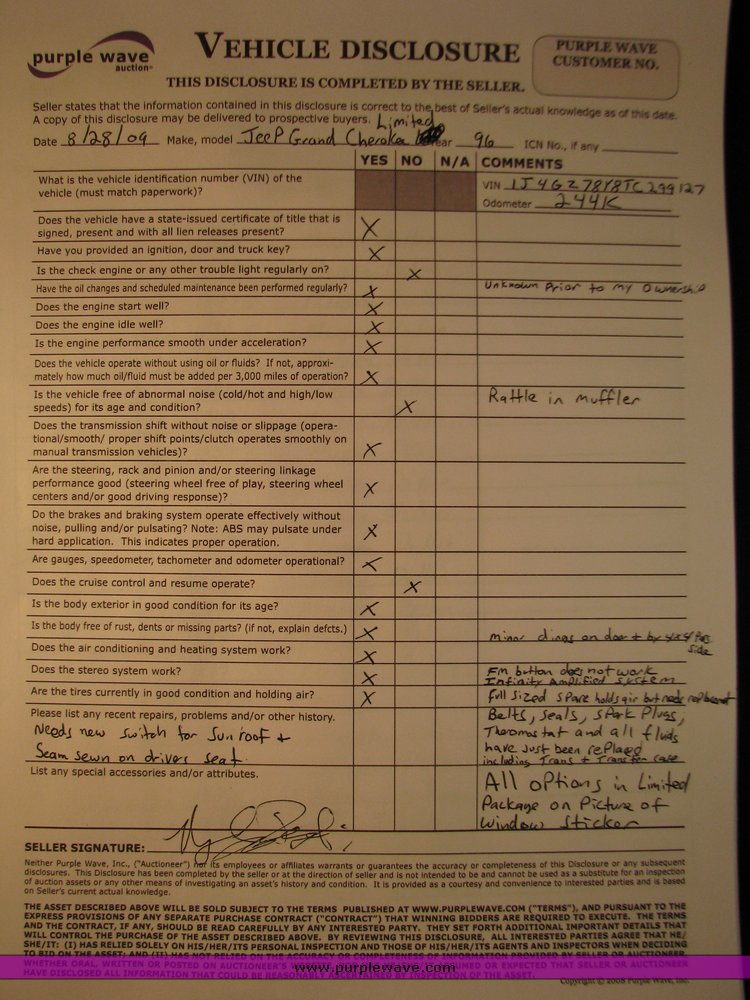 purple wave
auction
VEHICLE DISCLOSURE
PURPLE WAVE
CUSTOMER NO.
THIS DISCLOSURE IS COMPLETED BY THE SELLER.
Seller states that the information contained in this disclosure is correct to the best of Seller's actual knowledge as of this date.
A copy of this disclosure may be delivered to prospective buyers.
Limited
Date 8/28/09 Make, model JeeP Grand Cherokee Year 96 ICN No., if any
YES NO N/A COMMENTS
What is the vehicle identification number (VIN) of the
vehicle (must match paperwork)?
VIN 1J4GZ78Y8TC299127
Odometer 244K
Does the vehicle have a state-issued certificate of title that is
signed, present and with all lien releases present? X
Have you provided an ignition, door and truck key? X
Is the check engine or any other trouble light regularly on? X
Have the oil changes and scheduled maintenance been performed regularly? X Unknown Prior to my Ownership
Does the engine start well? X
Does the engine idle well? X
Is the engine performance smooth under acceleration? X
Does the vehicle operate without using oil or fluids? If not, approxi-
mately how much oil/fluid must be added per 3,000 miles of operation? X
Is the vehicle free of abnormal noise (cold/hot and high/low
speeds) for its age and condition? X Rattle in muffler
Does the transmission shift without noise or slippage (opera-
tional/smooth/ proper shift points/clutch operates smoothly on
manual transmission vehicles)? X
Are the steering, rack and pinion and/or steering linkage
performance good (steering wheel free of play, steering wheel
centers and/or good driving response)? X
Do the brakes and braking system operate effectively without
noise, pulling and/or pulsating? Note: ABS may pulsate under
hard application. This indicates proper operation. X
Are gauges, speedometer, tachometer and odometer operational? X
Does the cruise control and resume operate? X
Is the body exterior in good condition for its age? X
Is the body free of rust, dents or missing parts? (if not, explain defcts.) X minor dings on door + by 4x4 Pas
side
Does the air conditioning and heating system work? X
Does the stereo system work? X Fm button does not work
Infinity Amplified system
Are the tires currently in good condition and holding air? X full sized sPare holds air but needs replacement
Please list any recent repairs, problems and/or other history.
Needs new switch for Sun roof +
Seam sewn on drivers seat.
Belts, seals, sPark Plugs,
Thermostat and all fluids
have Just been rePlaced
including Trans + Transfer case
List any special accessories and/or attributes.
All oPtions in Limited
Package on Picture of
Window Sticker
SELLER SIGNATURE:
Neither Purple Wave, Inc., ("Auctioneer") nor its employees or affiliates warrants or guarantees the accuracy or completeness of this Disclosure or any subsequent
disclosures. This Disclosure has been completed by the seller or at the direction of seller and is not intended to be and cannot be used as a substitute for an inspection
of auction assets or any other means of investigating an asset's history and condition. It is provided as a courtesy and convenience to interested parties and is based
on Seller's current actual knowledge.
THE ASSET DESCRIBED ABOVE WILL BE SOLD SUBJECT TO THE TERMS PUBLISHED AT WWW.PURPLEWAVE.COM ("TERMS"), AND PURSUANT TO THE
EXPRESS PROVISIONS OF ANY SEPARATE PURCHASE CONTRACT ("CONTRACT") THAT WINNING BIDDERS ARE REQUIRED TO EXECUTE. THE TERMS
AND THE CONTRACT, IF ANY, SHOULD BE READ CAREFULLY BY ANY INTERESTED PARTY. THEY SET FORTH ADDITIONAL IMPORTANT DETAILS THAT
WILL CONTROL THE PURCHASE OF THE ASSET DESCRIBED ABOVE. BY REVIEWING THIS DISCLOSURE, ALL INTERESTED PARTIES AGREE THAT HE/
SHE/IT: (I) HAS RELIED SOLELY ON HIS/HER/ITS PERSONAL INSPECTION AND THOSE OF HIS/HER/ITS AGENTS AND INSPECTORS WHEN DECIDING
TO BID ON THE ASSET; AND (II) HAS NOT RELIED ON THE ACCURACY OR COMPLETENESS OF INFORMATION PROVIDED BY SELLER OR AUCTIONEER
WHETHER ORAL, WRITTEN OR POSTED ON AUCTIONEER'S OR EXPECTED THAT SELLER OR AUCTIONEER
HAVE DISCLOSED ALL INFORMATION THAT COULD BE REASONABLY ASCERTAINED BY INSPECTION OF THE ASSET.
www.purplewave.com
Copyright © 2008 Purple Wave, Inc.